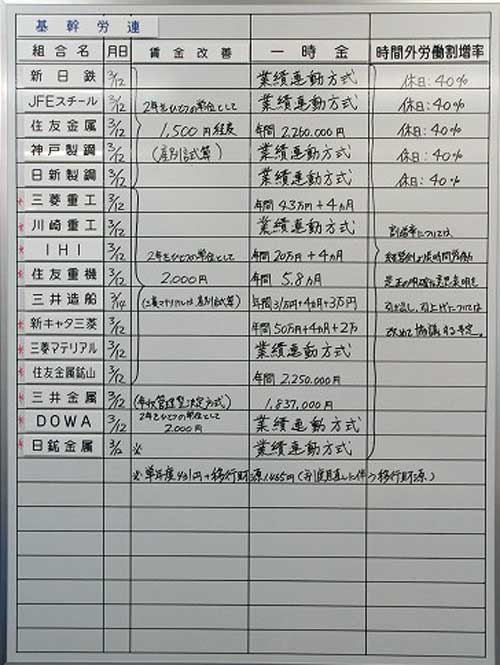 基幹労連
組合名 月日 賃金改善 一時金 時間外労働割増率
新日鉄 3/12 業績連動方式 休日:40%
JFEスチール 3/12 2年をひとつの単位として 業績連動方式 休日:40%
住友金属 3/12 1,500円程度 年間 2,260,000円 休日:40%
神戸製鋼 3/12 (産別試算) 業績連動方式 休日:40%
日新製鋼 3/12 業績連動方式 休日:40%
三菱重工 3/12 年間 43万円+4ヵ月
川崎重工 3/12 業績連動方式 割増率については
IHI 3/12 2年をひとつの単位として 年間 20万円+4ヵ月
住友重機 3/12 2,000円 年間 5.8ヵ月 是正の明確な意思表明を
三井造船 3/14 (三菱マテリアルは産別試算) 年間 31万円+4ヵ月+3万円 引き出し、引上げについては
新キャタ三菱 3/12 年間 50万円+4ヵ月+2万 改めて協議する予定。
三菱マテリアル 3/12 業績連動方式
住友金属鉱山 3/12 年間 2,250,000円
三井金属 3/12 (年収管理型決定方式) 1,837,000円
DOWA 3/12 2年をひとつの単位として 2,000円 業績連動方式
日鉱金属 3/12 ※ 業績連動方式
※単年度431円+移行財源1,465円(制度見直しに伴う移行財源)